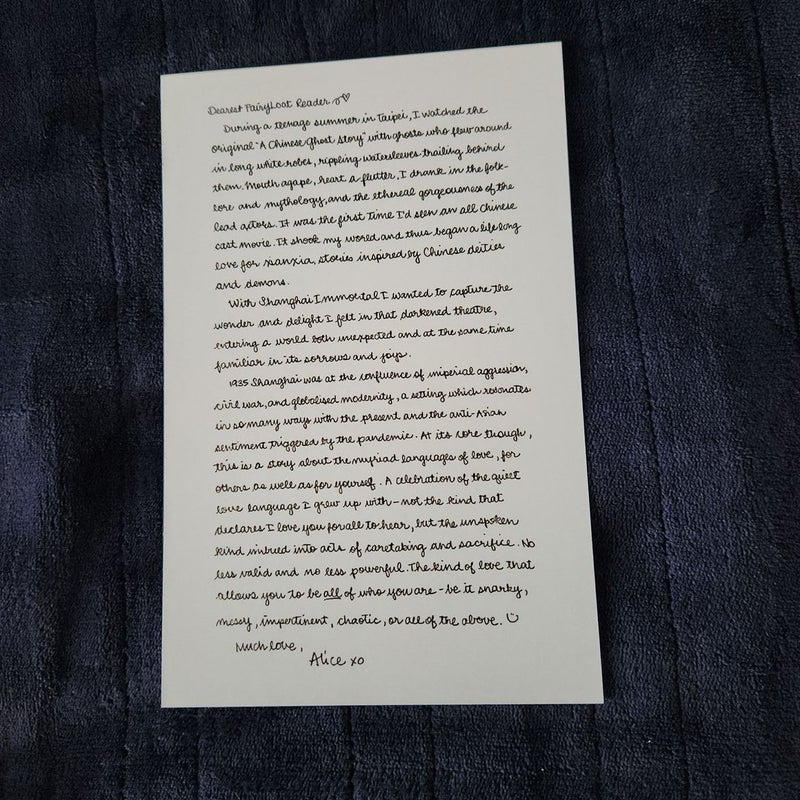 Dearest FairyLoot Reader
During a teenage summer in Taipei, I watched the
original "A Chinese Ghost Story" with ghosts who flew around
in long white robes, rippling watersleeves trailing behind
them. Mouth agape, heart a flutter, I drank in the folk-
lore and mythology, and the ethereal gorgeousness of the
lead actors. It was the first time I'd seen an all Chinese
cast movie. It shook my world and thus began a life long
love for xianxia, stories inspired by Chinese deities
and demons.
With Shanghai Immortal I wanted to capture the
wonder and delight I felt in that darkened theatre,
entering a world both unexpected and at the same time
familiar in its sorrows and joys.
1935 Shanghai was at the confluence of imperial aggression,
civil war, and globalised modernity, a setting which resonates
in so many ways with the present and the anti-Asian
sentiment triggered by the pandemic. At its core though,
this is a story about the myriad languages of love, for
others as well as for yourself. A celebration of the quiet
love language I grew up with - not the kind that
declares I love you for all to hear, but the unspoken
kind imbued into acts of caretaking and sacrifice. No
less valid and no less powerful. The kind of love that
allows you to be all of who you are - be it snarky,
messy, impertinent, chaotic, or all of the above.
Much love,
Alice xo